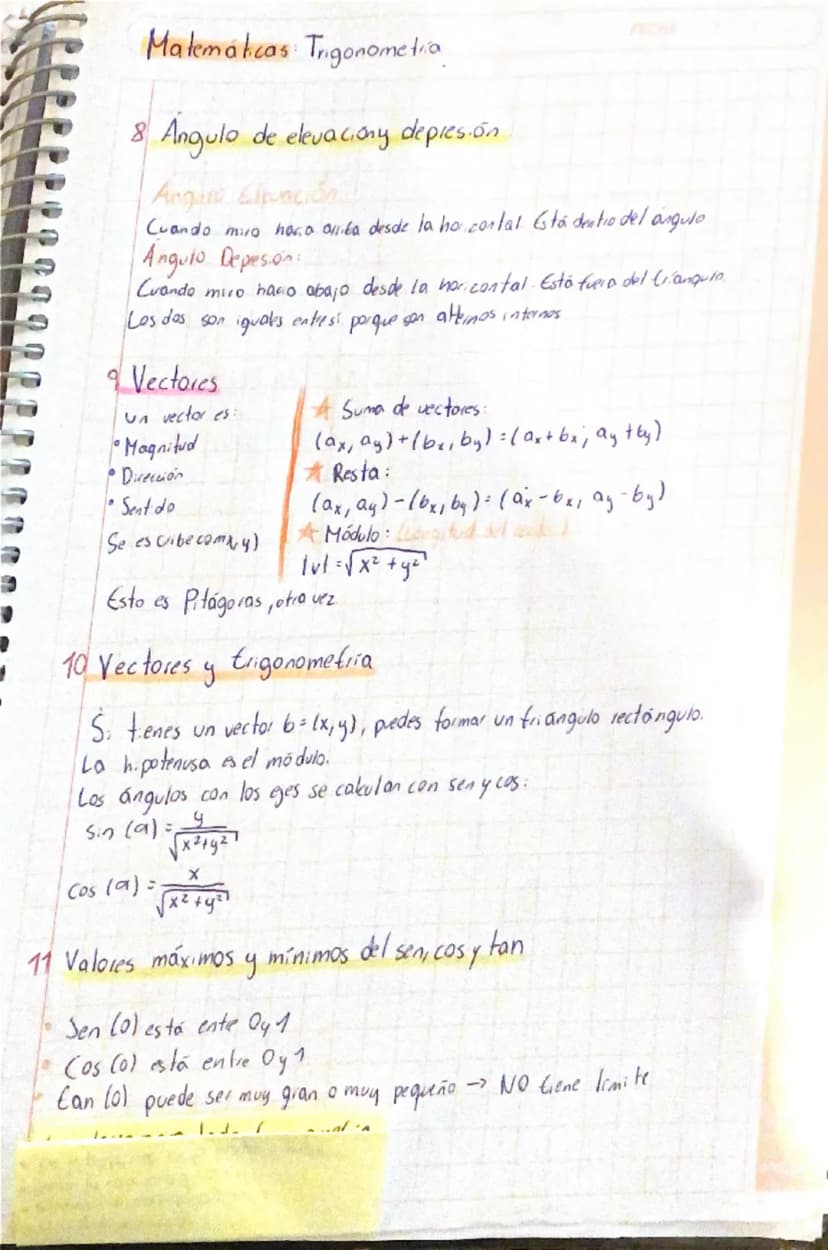 FECHA
Matemáticas: Trigonometría
8 Ángulo de elevación y depresión
Ángulo Elevación
Cuando miro hacia arriba desde la horizontal. Está dentro del ángulo
Ángulo Depresión:
Cuando miro hacia abajo desde la horizontal. Está fuera del triángulo.
Los dos son iguales entre sí porque son alternos internos
9 Vectores
Un vector es:
• Magnitud
• Dirección
• Sentido
Se escribe com(x,y)
☆ Suma de vectores:
(aₓ, aᵧ)+(bₓ, bᵧ)=(aₓ+bₓ, aᵧ+bᵧ)
☆ Resta:
(aₓ, aᵧ)-(bₓ, bᵧ)=(aₓ-bₓ, aᵧ-bᵧ)
☆ Módulo: (Longitud del vector)
|v|=√x²+y²
Esto es Pitágoras, otra vez
10 Vectores y trigonometría
Si tienes un vector b=(x,y), puedes formar un triángulo rectángulo.
La hipotenusa es el módulo.
Los ángulos con los ejes se calculan con sen y cos:
sin (a)= y/√x²+y²
cos (a)= x/√x²+y²
11 Valores máximos y mínimos del sen, cos y tan
• Sen (0) está ente 0 y 1
• Cos (0) está entre 0 y 1
• tan (0) puede ser muy gran o muy pequeño → NO tiene límite